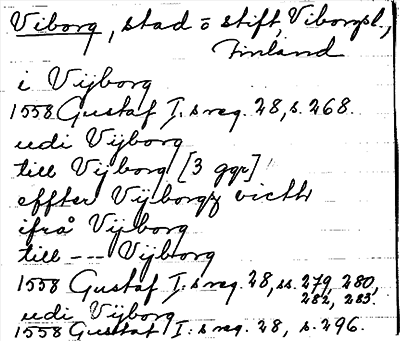 Viborg, stad o stift, Viborgsl.,
Finland
i Vijborg
1558 Gustaf I:s reg. 28, s. 268.
udi Vijborg
till Vijborg [3 ggr]
effter Vijborgz victh
ifrå Vijborg
till --- Vijborg
1558 Gustaf I:s reg. 28, ss. 279, 280,
282, 283.
udi Vijborg
1558 Gustaf I:s reg. 28, s. 296.